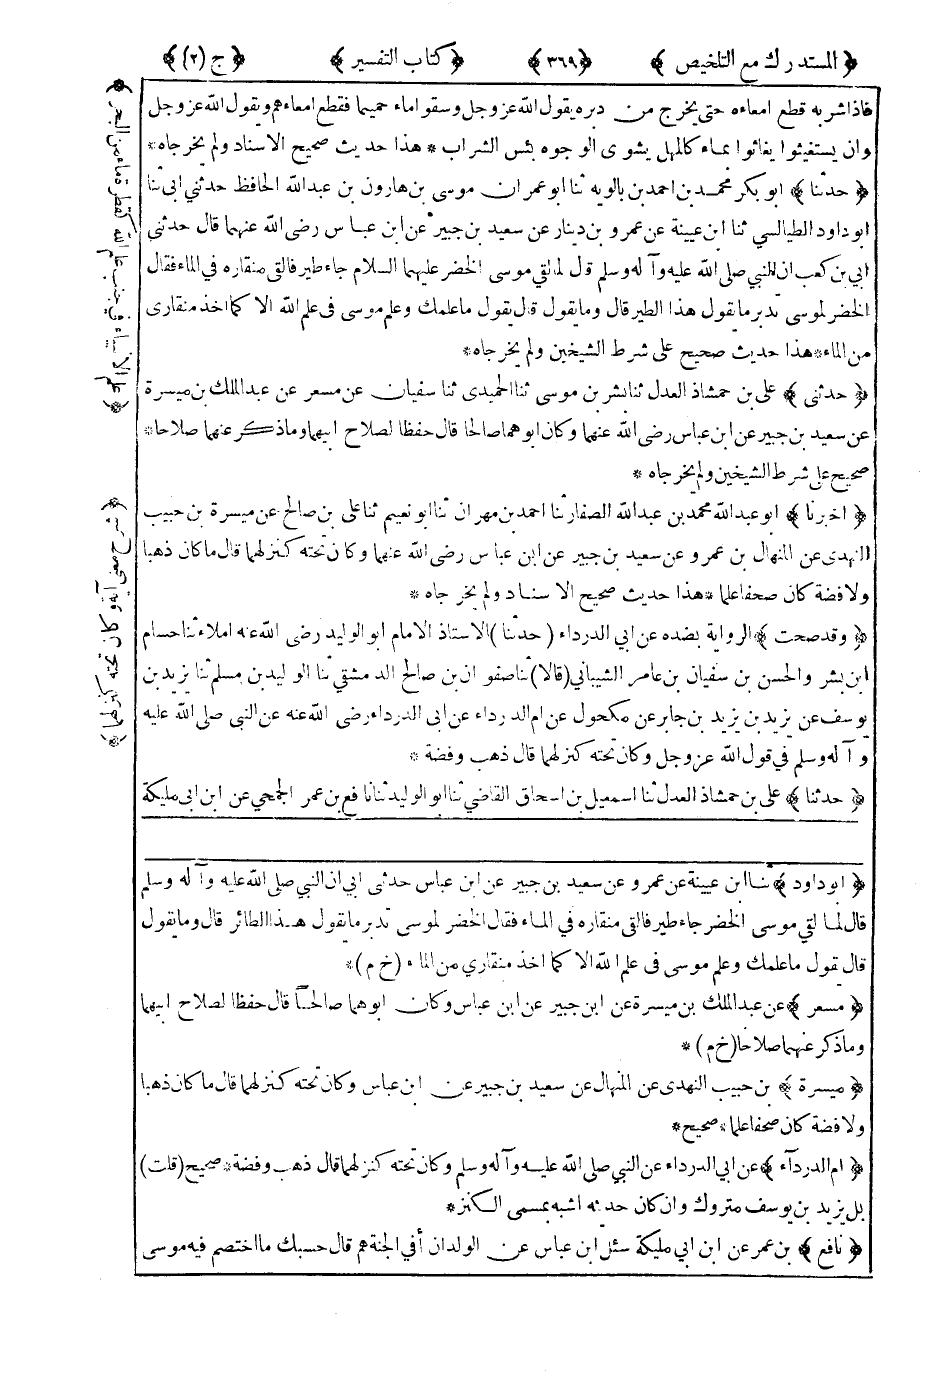 ﴿المستدرك مع التلخيص﴾ ﴿٣٦٩﴾ ﴿كتاب التفسير﴾ ﴿ج (٢)﴾
فاذا شربه قطع امعاءه حتى يخرج من دبره يقول الله عز وجل وسقوا ماء حميما فقطع امعاءهم ويقول الله عز وجل
وان يستغيثوا يغاثوا بماء كالمهل يشوى الوجوه بئس الشراب * هذا حديث صحيح الاسناد ولم يخرجاه *
﴿حدثنا﴾ ابو بكر محمد بن احمد بن بالويه ثنا ابو عمران موسى بن هارون بن عبد الله الحافظ حدثني ابى ثنا
ابو داود الطيالسي ثنا ابن عيينة عن عمرو بن دينار عن سعيد بن جبير عن ابن عباس رضى الله عنهما قال حدثنى
ابي بن كعب ان النبي صلى الله عليه وآله وسلم قال لما لقي موسى الخضر عليهما السلام جاء طير فالقى منقاره في الماء فقال
الخضر لموسى تدبر ما يقول هذا الطير قال وما يقول قال يقول ما علمك وعلم موسى فى علم الله الا كما اخذ منقارى
من الماء * هذا حديث صحيح على شرط الشيخين ولم يخرجاه *
﴿حدثنى﴾ على بن حمشاذ العدل ثنا بشر بن موسى ثنا الحميدى ثنا سفيان عن مسعر عن عبد الملك بن ميسرة
عن سعيد بن جبير عن ابن عباس رضى الله عنهما وكان ابوهما صالحا قال حفظا لصلاح ابيهما وما ذكر عنهما صلاحا *
صحيح على شرط الشيخين ولم يخرجاه *
﴿اخبرنا﴾ ابو عبد الله محمد بن عبد الله الصفار ثنا احمد بن مهران ثنا ابو نعيم ثنا على بن صالح عن ميسرة بن حبيب
النهدى عن المنهال بن عمرو عن سعيد بن جبير عن ابن عباس رضى الله عنهما وكان تحته كنز لهما قال ما كان ذهبا
ولا فضة كان صحفا علما * هذا حديث صحيح الاسناد ولم يخرجاه *
﴿وقد صحت﴾ الرواية بضده عن ابي الدرداء (حدثنا) الاستاذ الامام ابو الوليد رضى الله عنه املاء ثنا حسام
ابن بشر والحسن بن سفيان بن عامر الشيباني (قالا) ثنا صفوان بن صالح الدمشقي ثنا الوليد بن مسلم ثنا يزيد بن
يوسف عن يزيد بن يزيد بن جابر عن مكحول عن ام الدرداء عن ابى الدرداء رضى الله عنه عن النبي صلى الله عليه
وآله وسلم في قول الله عز وجل وكان تحته كنز لهما قال ذهب وفضة *
﴿حدثنا﴾ على بن حمشاذ العدل ثنا اسمعيل بن اسحاق القاضي ثنا ابو الوليد ثنا نافع بن عمر الجمحي عن ابن ابى مليكة
﴿ابو داود﴾ ثنا ابن عيينة عن عمرو عن سعيد بن جبير عن ابن عباس حدثى ابي ان النبي صلى الله عليه وآله وسلم
قال لما لقي موسى الخضر جاء طير فالقى منقاره في الماء فقال الخضر لموسى تدبر ما يقول هذا الطائر قال وما يقول
قال يقول ما علمك وعلم موسى فى علم الله الا كما اخذ منقاري من الماء (خ م) *
﴿مسعر﴾ عن عبد الملك بن ميسرة عن ابن جبير عن ابن عباس وكان ابوهما صالحا قال حفظا لصلاح ابيهما
وما ذكر عنهما صلاحا (خ م) *
﴿ميسرة﴾ بن حبيب النهدى عن المنهال عن سعيد بن جبير عن ابن عباس وكان تحته كنز لهما قال ما كان ذهبا
ولا فضة كان صحفا علما * صحيح *
﴿ام الدردآء﴾ عن ابي الدرداء عن النبي صلى الله عليه وآله وسلم وكان تحته كنز لهما قال ذهب وفضة * صحيح (قلت)
بل يزيد بن يوسف متروك وان كان حديثه اشبه بمسمى الكنز *
﴿نافع﴾ بن عمر عن ابن ابي مليكة سئل ابن عباس عن الولدان أفي الجنة هم قال حسبك ما اختصم فيه موسى